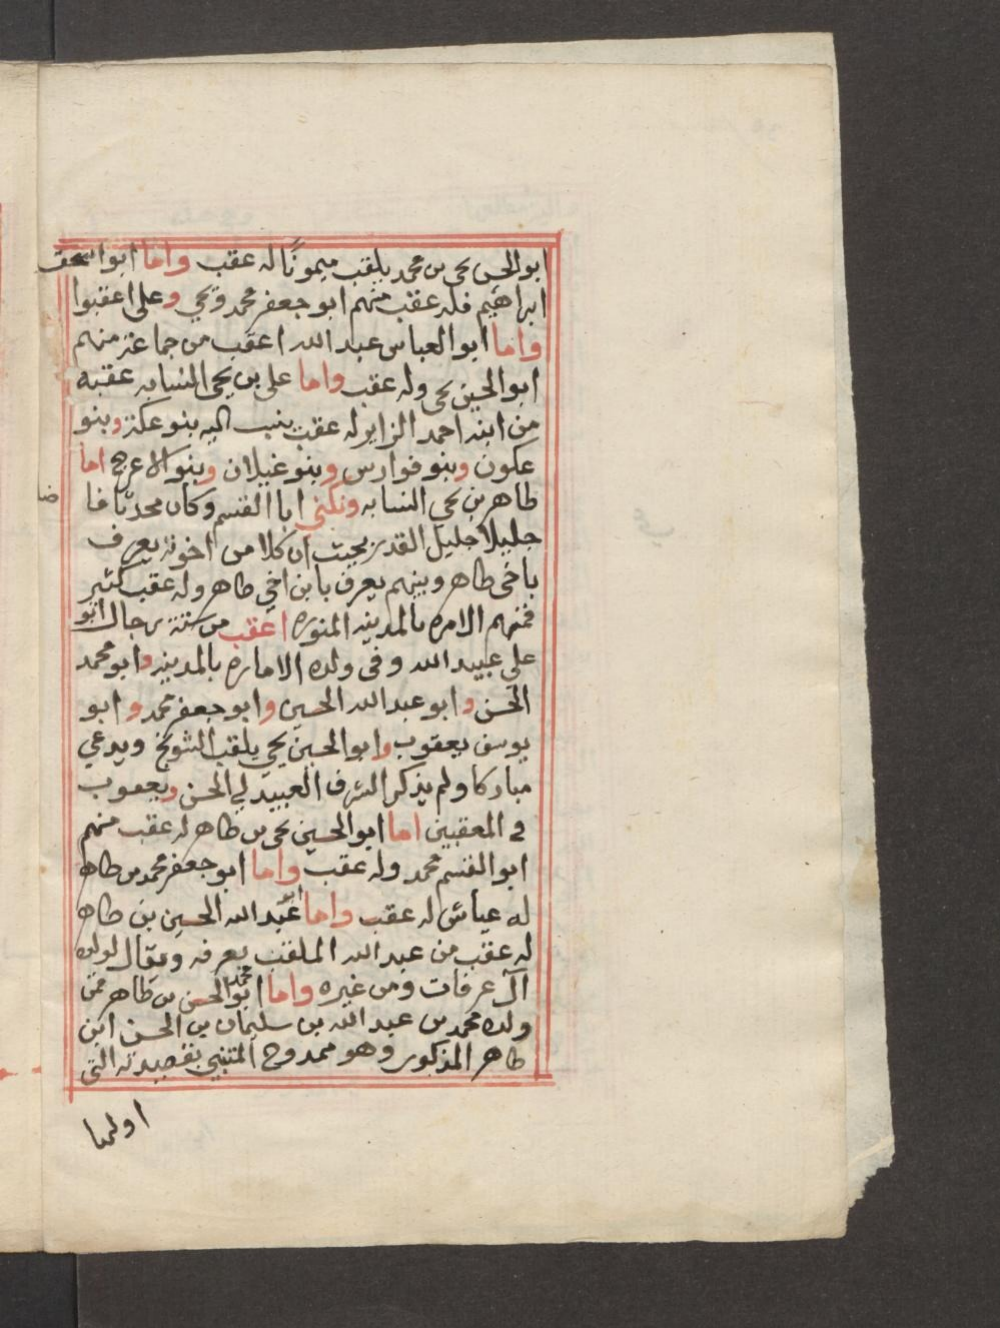 ابوالحسن يحيى بن محمد يلقب ميمونًا له عقب واما ابوا اسحق
ابراهيم فله عقب منهم ابو جعفر محمد ويحيي وعلي اعقبوا
واما ابو العباس عبد الله اعقب من جماعة منهم
ابو الحسين يحيى وله عقب واما علي بن يحيى النسابه عقبه
من ابنه احمد الزاير له عقب ينسب اليه بنو عكة وبنو
عكون وبنو فوارس وبنو غيلان وبنوالاعرج اما
طاهر بن يحيي النسابه ونكني ابا القسم وكان محدثا فا
ضا
جليلا جليل القدر بحيث ان كلا من اخوته يعرف
باخي طاهر وبينهم يعرف بابن اخي طاهر وله عقب كثير
فمنهم الامره بالمدينه المنوره اعقب من ستة رجال ابو
علي عبيد الله وفي ولده الاماره بالمدينه وابو محمد
الحسن وابو عبد الله الحسين وابو جعفر محمد وابو
يوسف يعقوب وابو الحسين يحيي يلقب الشويخ ويدعي
مباركا ولم يذكر الشرف العبيدلي الحسن ويعقوب
في المعقبين اما ابو الحسين يحيى بن طاهر له عقب منهم
ابو القسم محمد وله عقب واما ابو جعفر محمد بن طاهر
له عياش له عقب واما ابو عبد الله الحسين بن طاهر
له عقب من عبد الله الملقب بعرفه ويقال لولده
آل عرفات ومن غيره واما ابو محمد الحسن بن طاهر فمن
ولده محمد بن عبد الله بن سليمان بن الحسن ابن
طاهر المذكور وهو ممدوح المتنبي بقصيدته التي
اولها